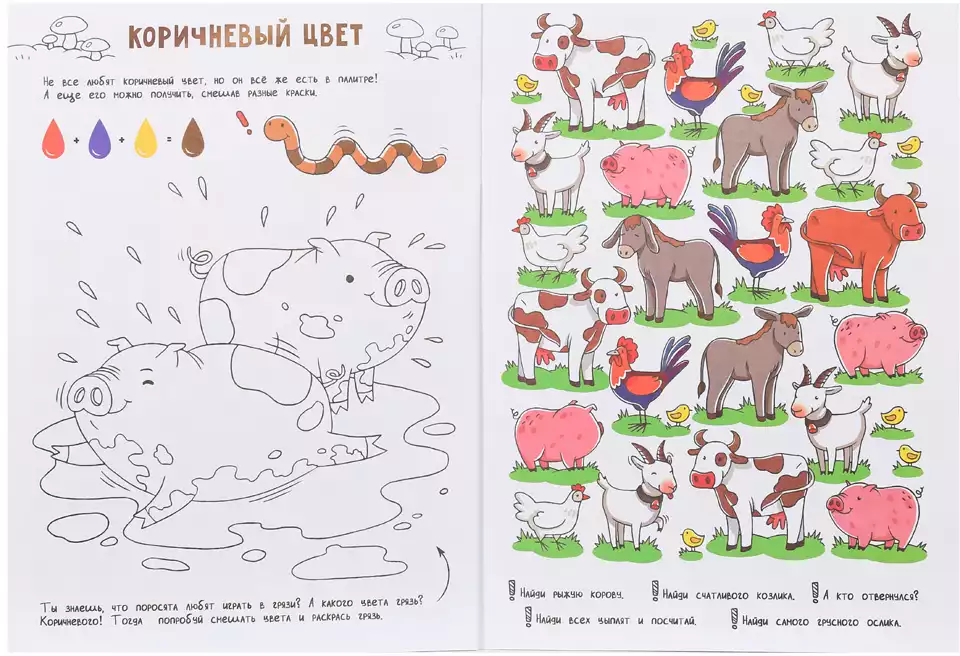 КОРИЧНЕВЫЙ ЦВЕТ
Не все любят коричневый цвет, но он всё же есть в палитре!
А еще его можно получить, смешав разные краски.
+ + =
Ты знаешь, что поросята любят играть в грязи? А какого цвета грязь?
Коричневого! Тогда попробуй смешать цвета и раскрась грязь.
Найди рыжую корову.
Найди счатливого козлика.
А кто отвернулся?
Найди всех цыплят и посчитай.
Найди самого грусного ослика.